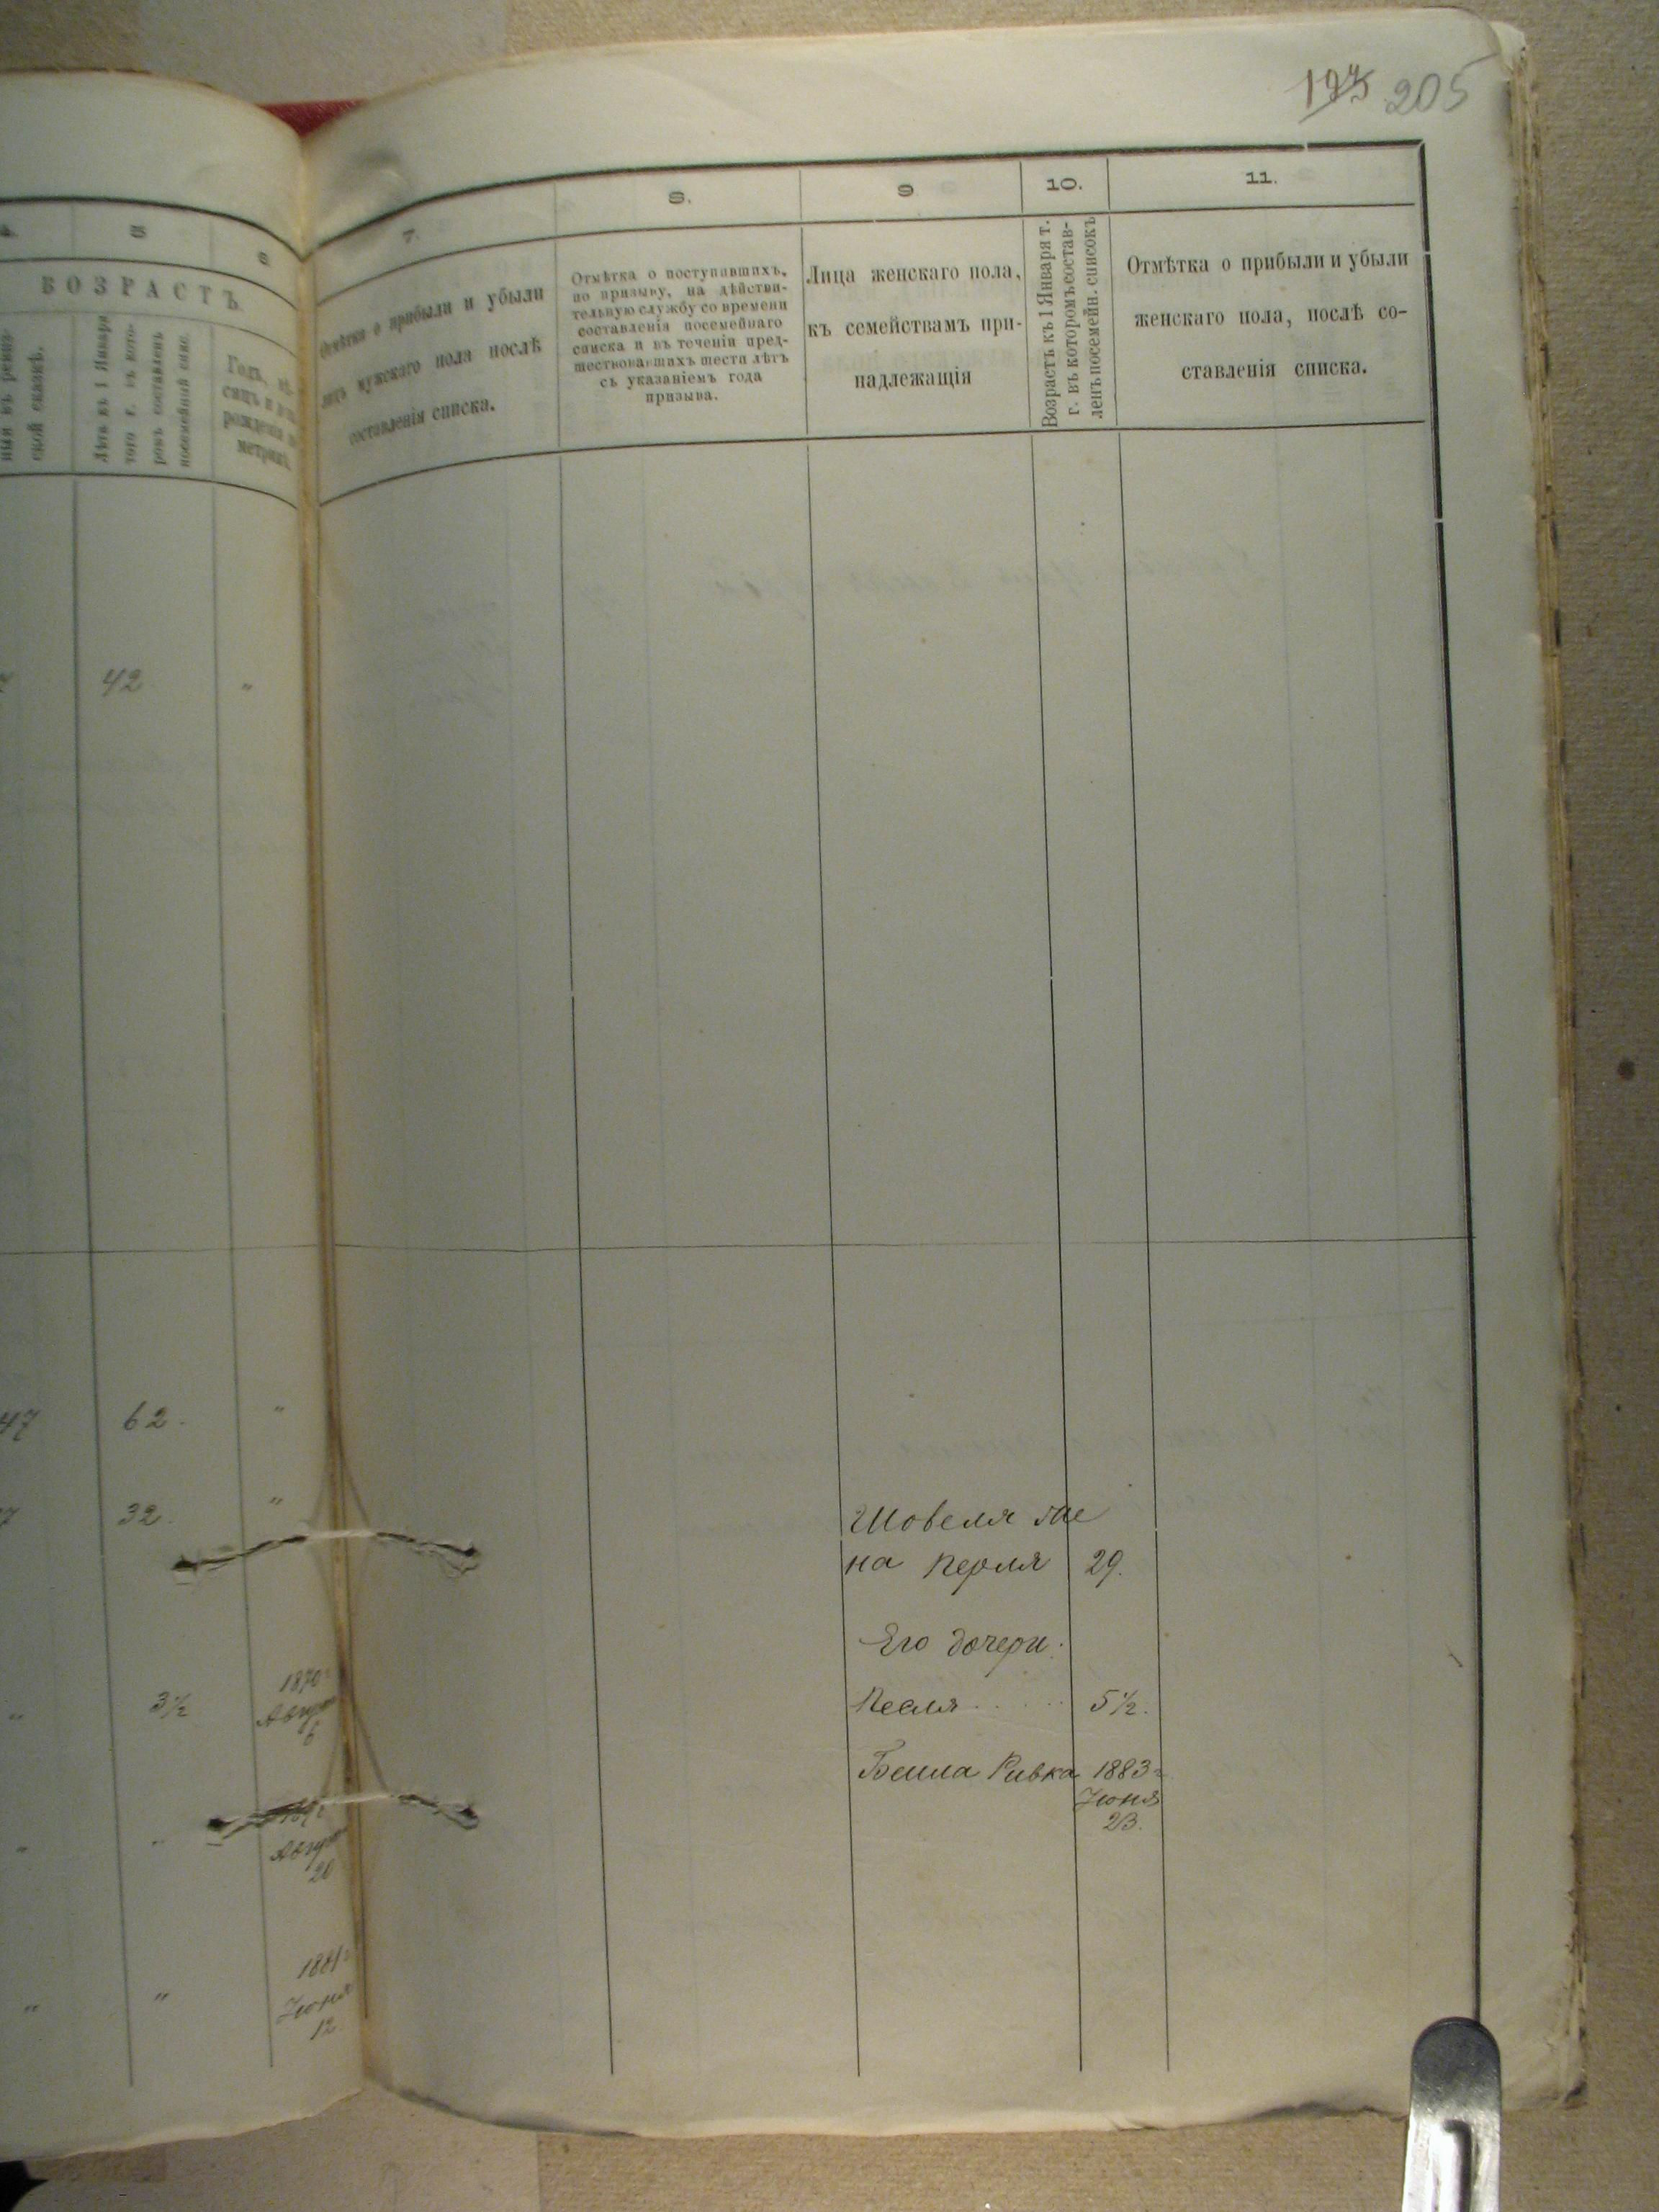 205
4.
5
6
ВОЗРАСТЪ.
ской сказкѣ.
Лѣта къ 1 Января
того г. въ кото-
ромъ составленъ
посемейный
Годъ, мѣ-
рожденія
метрик
7.
8.
9
10.
11.
Отмѣтка о прибыли и убыли
лицъ мужскаго пола послѣ
составленія списка.
Отмѣтка о поступившихъ,
по призыву, на дѣйстви-
тельную службу со времени
составленія посемейнаго
списка и въ теченіи пред-
шествовавшихъ шести лѣтъ
съ указаніемъ года
призыва.
Лица женскаго пола,
къ семействамъ при-
надлежащія
Возрастъ къ 1 Января т.
г. въ которомъ состав-
ленъ посемейн. списокъ
Отмѣтка о прибыли и убыли
женскаго пола, послѣ со-
ставленія списка.
42 "
47 62. "
32. "
Шовеля же
на Перля 29.
Его дочери:
Песля . . . . 5½.
Бейла Ривка 1883 г.
Іюня
23.
" 3½ 1870 г.
Август
6
" "
Август
20
" " 1881 г.
Іюня
12